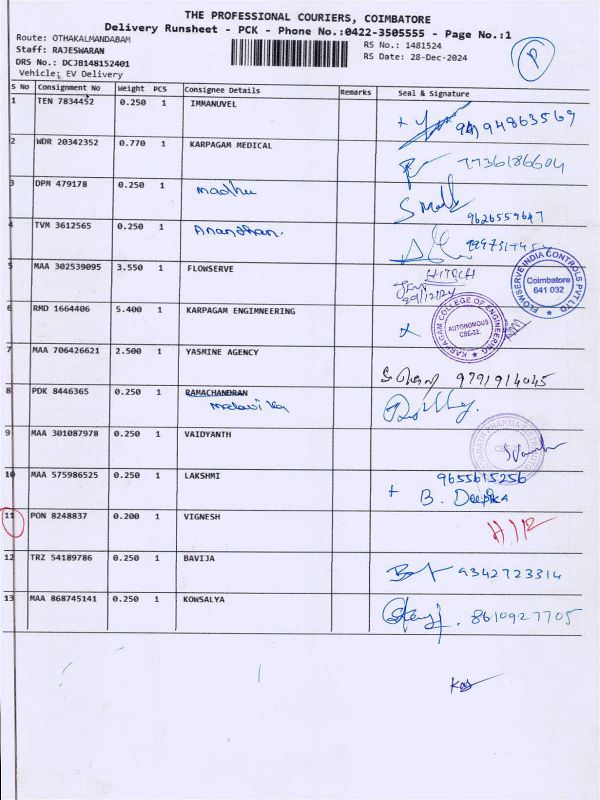 THE PROFESSIONAL COURIERS, COIMBATORE
Delivery Runsheet - PCK - Phone No.:0422-3505555 - Page No.:1
Route: OTHAKALMANDABAM
RS No.: 1481524
Staff: RAJESWARAN
RS Date: 28-Dec-2024
DRS No.: DCJB148152401
Vehicle: EV Delivery
P
S No Consignment No Weight PCS Consignee Details Remarks Seal & Signature
1 TEN 7834452 0.250 1 IMMANUVEL
9494863569
2 WDR 20342352 0.770 1 KARPAGAM MEDICAL
7736186604
3 DPM 479178 0.250 1 Madhu
9626559647
4 TVM 3612565 0.250 1 Anandhan.
5 MAA 302539095 3.550 1 FLOWSERVE
HITECH
FLOWSERVE INDIA CONTROLS PVT LTD
Coimbatore
641 032
6 RMD 1664406 5.400 1 KARPAGAM ENGIMNEERING
KARPAGAM COLLEGE OF ENGINEERING
AUTONOMOUS
CBE-32.
7 MAA 706426621 2.500 1 YASMINE AGENCY
9791914045
8 PDK 8446365 0.250 1 RAMACHANDRAN
9 MAA 301087978 0.250 1 VAIDYANTH
10 MAA 575986525 0.250 1 LAKSHMI
9655615256
B. Deepika
11 PON 8248837 0.200 1 VIGNESH
12 TRZ 54189786 0.250 1 BAVIJA
9342723314
13 MAA 868745141 0.250 1 KOWSALYA
8610927705